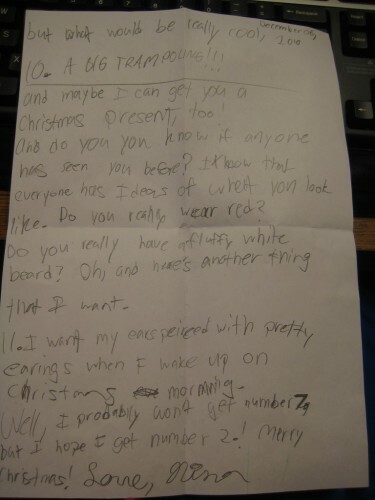 December 08,
2010
but what would be really cool,
10. A BIG TRAMPOLINE!!!
and maybe I can get you a
Christmas present, too!
and do you you know if anyone
has seen you before? I know that
everyone has Ideas of what you look
like. Do you really wear red?
Do you really have a fluffy white
beard? Oh, and here's another thing
that I want.
11. I want my ears peirced with pretty
earings when I wake up on
Christmas mornning.
Well, I probably won't get number 7.
but I hope I get number 2.! Merry
Christmas! Love,